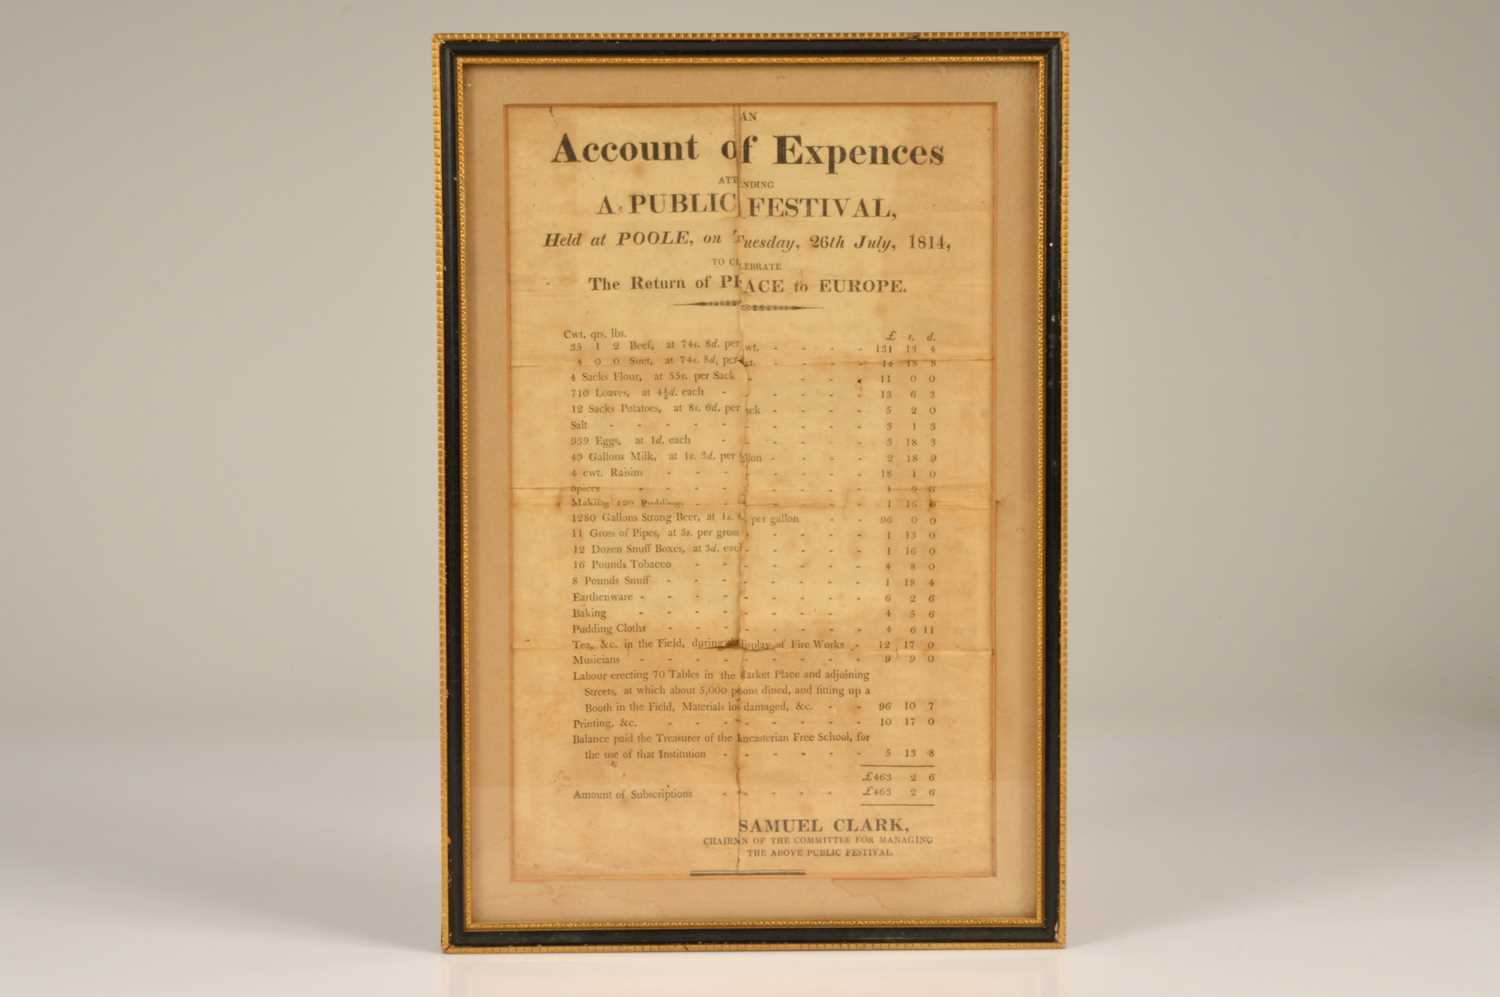 AN
Account of Expences
ATTENDING
A PUBLIC FESTIVAL,
Held at POOLE, on Tuesday, 26th July, 1814,
TO CELEBRATE
The Return of PEACE to EUROPE.
Cwt. qrs. lbs. £ s. d.
35 1 2 Beef, at 74s. 8d. per cwt. - - - - 131 13 4
4 0 0 Suet, at 74s. 8d. per - - - - 14 18 8
4 Sacks Flour, at 55s. per Sack - - - - 11 0 0
710 Loaves, at 4½d. each - - - - - 13 6 3
12 Sacks Potatoes, at 8s. 6d. per Sack - - - - 5 2 0
Salt - - - - - - - - - 3 1 3
939 Eggs, at 1d. each - - - - - - 3 18 3
49 Gallons Milk, at 1s. 3d. per Gallon - - - - 2 18 9
4 cwt. Raisins - - - - - - - - 18 1 0
Spices - - - - - - - - - 9 6
Making 120 Puddings - - - - - - - 1 16
1280 Gallons Strong Beer, at 1s. per gallon - - 96 0 0
11 Gross of Pipes, at 3s. per gross - - - - 1 13 0
12 Dozen Snuff Boxes, at 3d. each - - - - - 1 16 0
16 Pounds Tobacco - - - - - - - 4 8 0
8 Pounds Snuff - - - - - - - - 1 19 4
Earthenware - - - - - - - - - 6 2 6
Baking - - - - - - - - 4 5 6
Pudding Cloths - - - - - - - - 4 6 11
Tea, &c. in the Field, during display of Fire Works - 12 17 0
Musicians - - - - - - - - - 9 9 0
Labour erecting 70 Tables in the Market Place and adjoining
Streets, at which about 5,000 persons dined, and fitting up a
Booth in the Field, Materials lost damaged, &c. - - 96 10 7
Printing, &c. - - - - - - - - 10 17 0
Balance paid the Treasurer of the Lancasterian Free School, for
the use of that Institution - - - - - - 5 13 8
£463 2 6
Amount of Subscriptions - - - - - £463 2 6
SAMUEL CLARK,
CHAIRMAN OF THE COMMITTEE FOR MANAGING
THE ABOVE PUBLIC FESTIVAL.